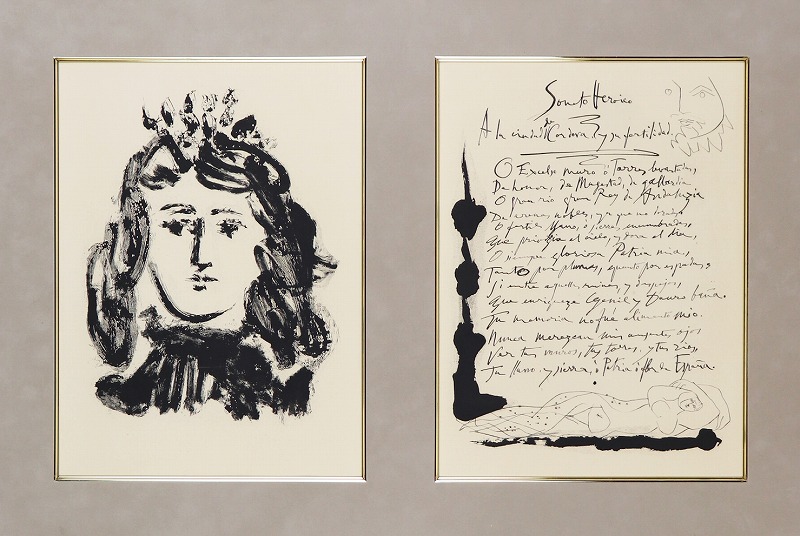 Soneto Heroico
A la ciudad de Cordova. y su fertilidad.
O Excelso muro o Torres levantadas,
De honor, de Magestad, de gallardia.
O gran rio gran Rey de Andaluzia
De arenas nobles, ya que no doradas
O fertil llano, o sierras encumbradas,
Que privilegia el cielo, y dora el dia,
O siempre gloriosa Patria mia,
Tanto por plumas, quanto por espadas,
Si entre aquellas ruinas, y despojos,
Que enriqueze Genil y Dauro baña.
Tu memoria no fue alimento mio.
Nunca merezcan mis ausentes ojos
Ver tus muros, tus torres, y tu rio,
Tu llano y sierra, o Patria o flor de España.